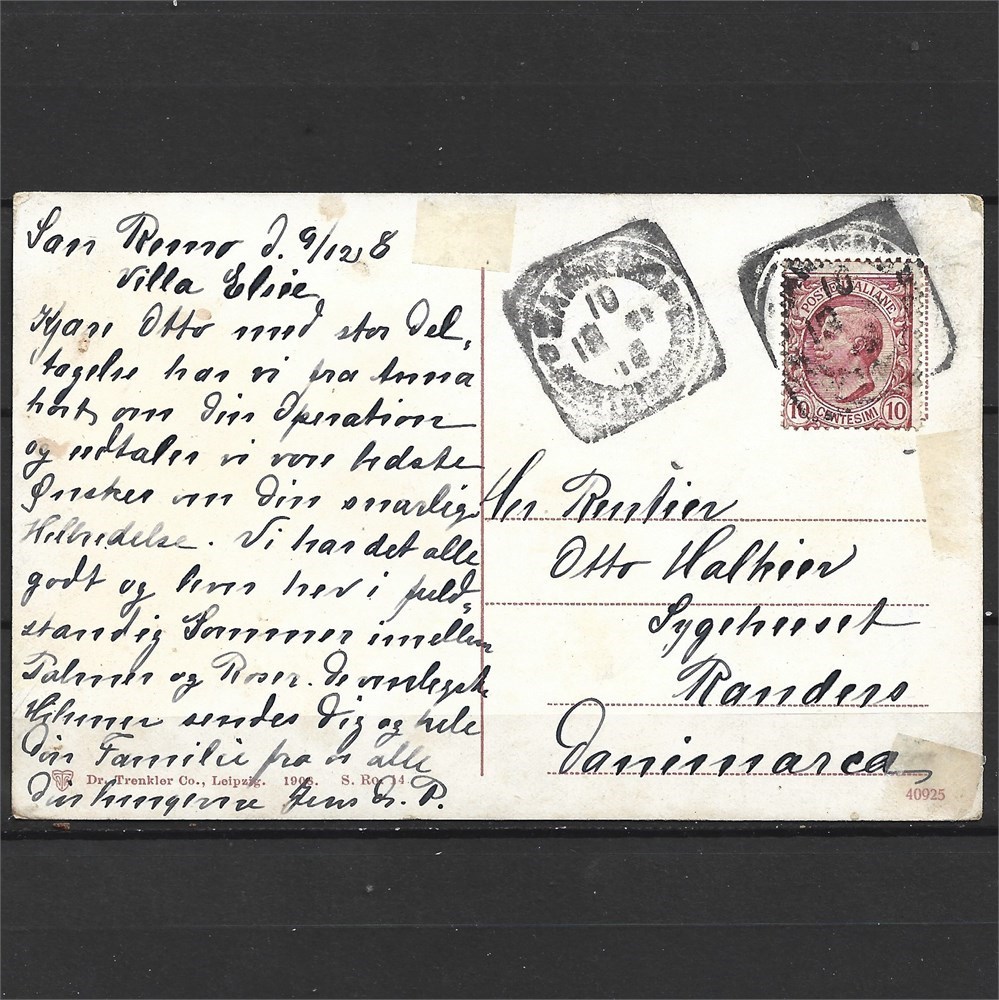 San Remo d. 9/12 8
Villa Elise
Kjære Otto med stor Del-
tagelse har vi fra Anna
hört om din Operation
og udtaler vi vore bedste
Ønsker om din snarlige
Helbredelse. Vi har det alle
godt og lever her i fuld-
standig Sommer imellem
Palmer og Roser. De venligste
Hilsner sendes Dig og hele
din Familie fra os alle
din hengivne Jens Ds. P.
Dr. Trenkler Co., Leipzig. 1908. S. Ro. 14
POSTE ITALIANE
10 CENTESIMI 10
10
12
Hr Rentier
Otto Halkier
Sygehuset
Randers
Danimarca
40925